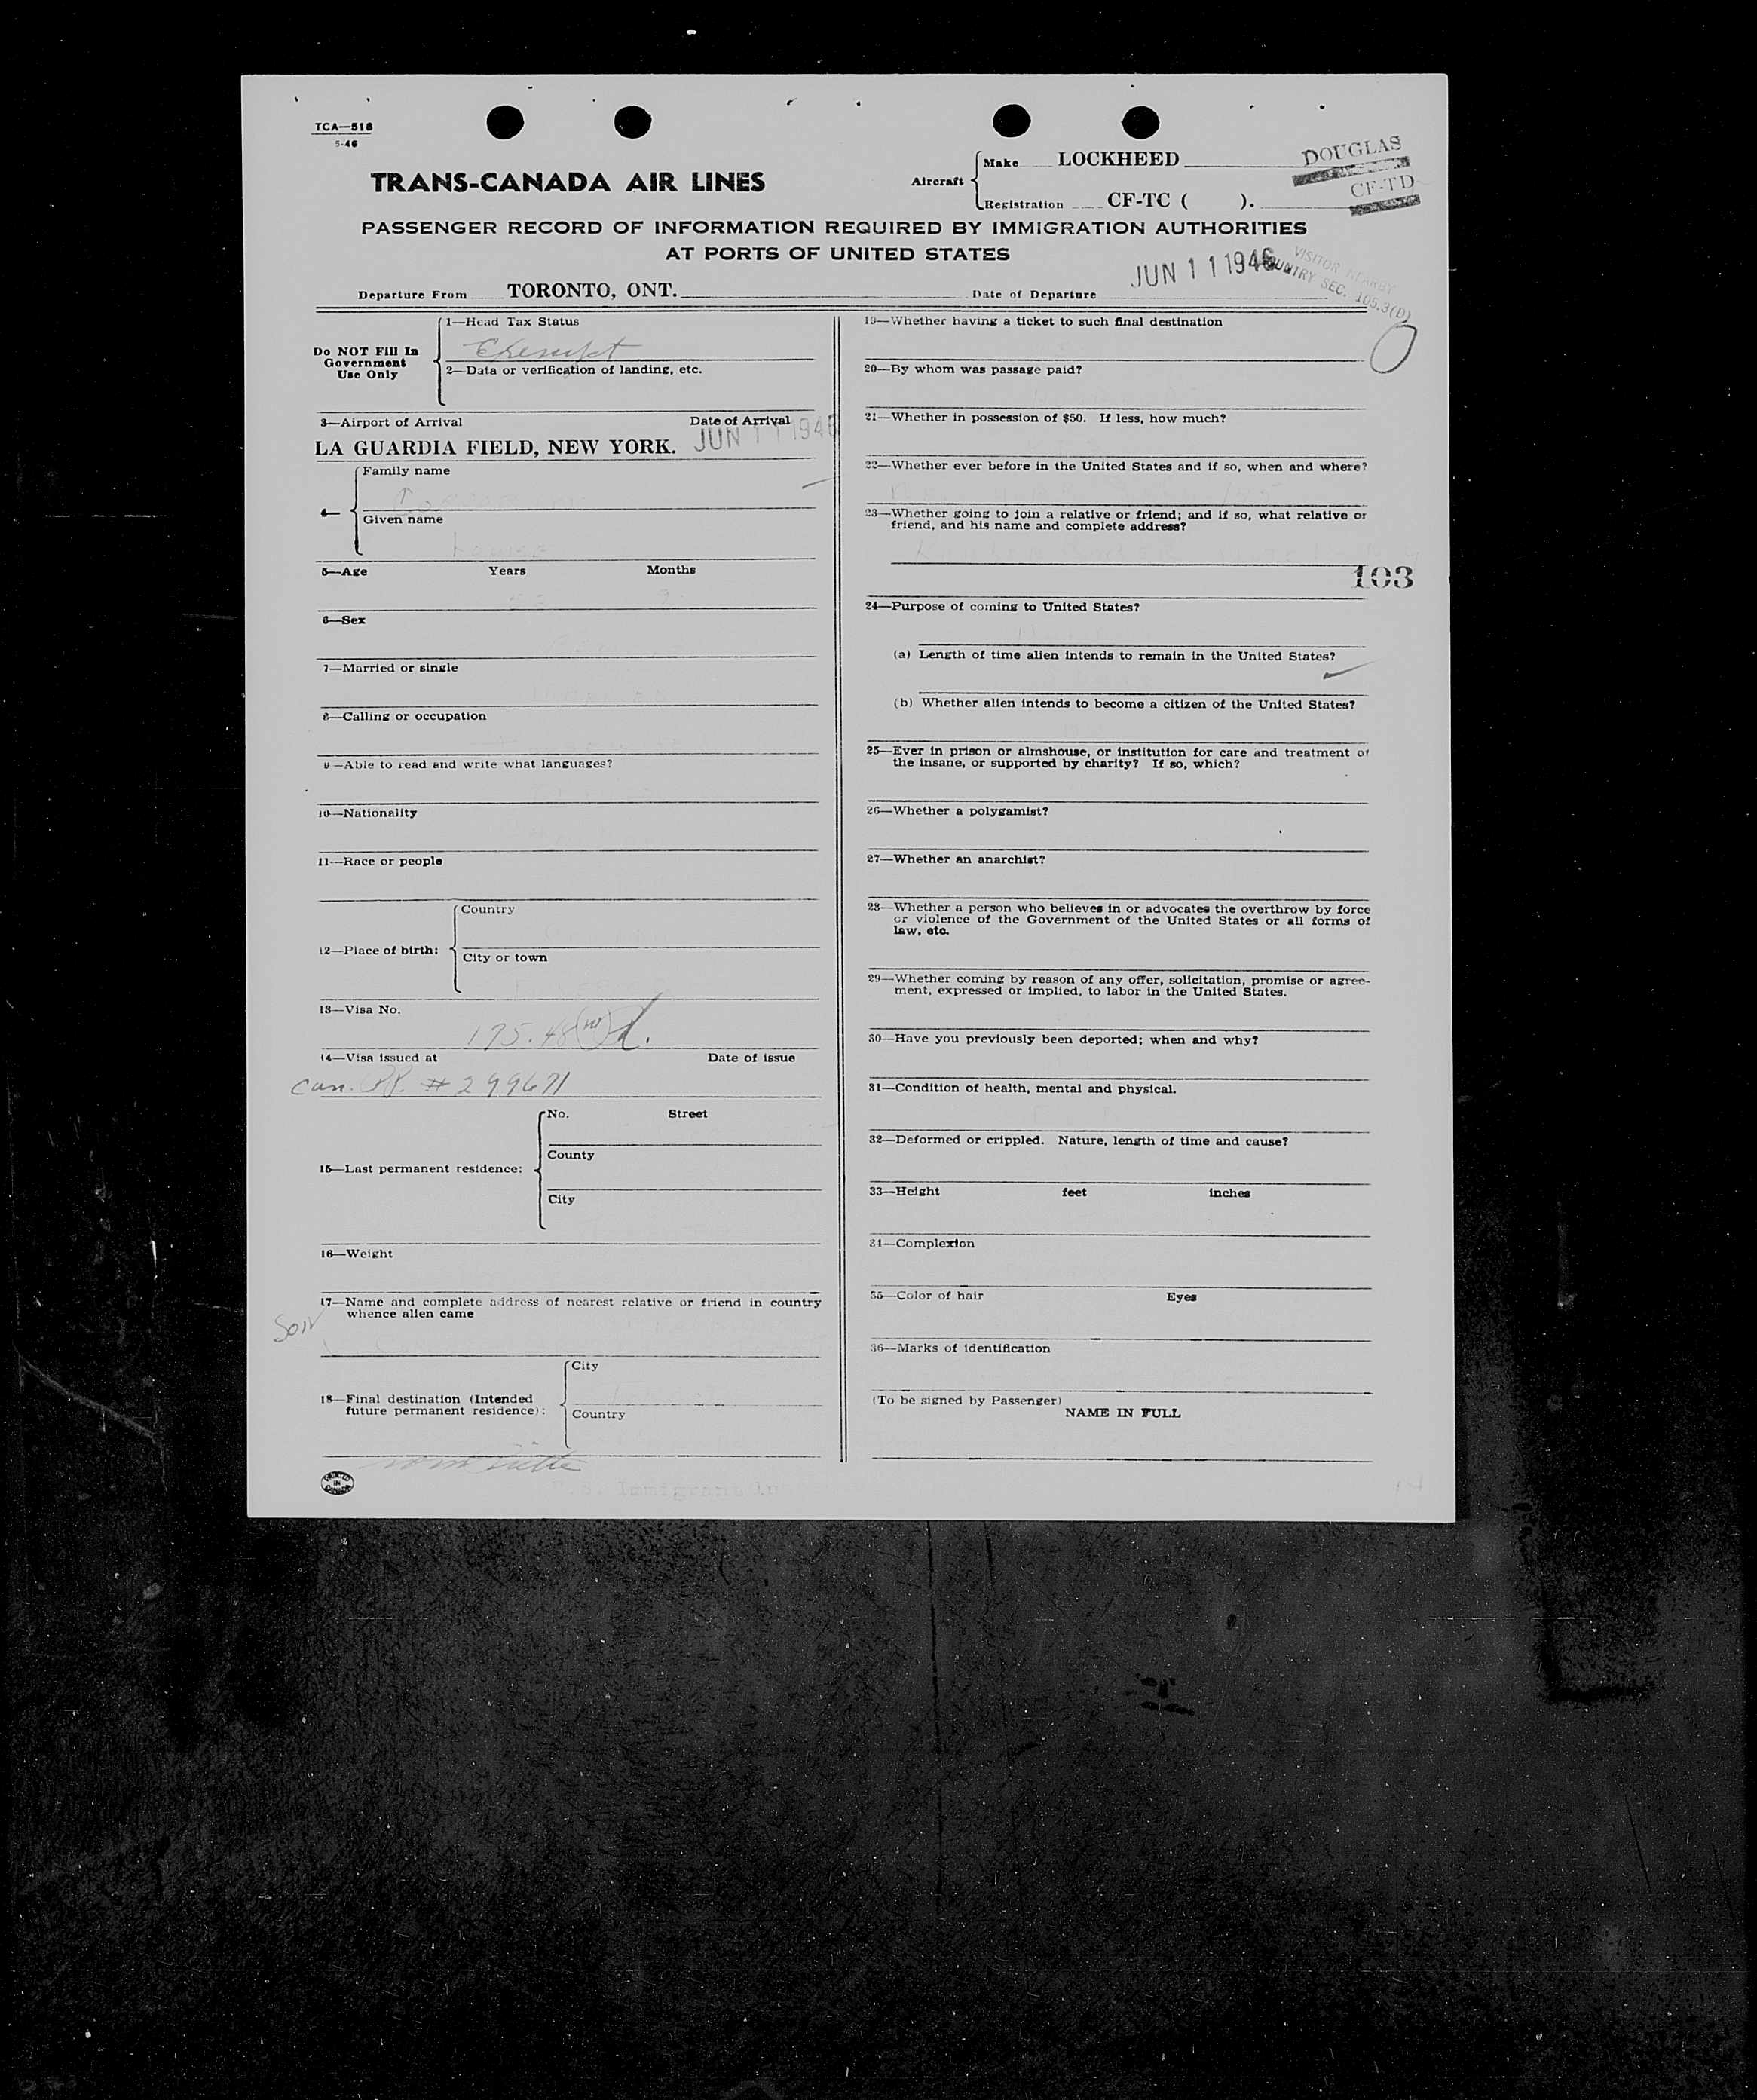 TCA—518
5-46
TRANS-CANADA AIR LINES
Aircraft
Make LOCKHEED
DOUGLAS
Registration CF-TC ( ).
CF-TD
PASSENGER RECORD OF INFORMATION REQUIRED BY IMMIGRATION AUTHORITIES
AT PORTS OF UNITED STATES
Departure From TORONTO, ONT.
Date of Departure JUN 11 1946
VISITOR NEARBY
COUNTRY SEC. 105.3(D)
Do NOT Fill In
Government
Use Only
1—Head Tax Status
Exempt
2—Data or verification of landing, etc.
3—Airport of Arrival Date of Arrival
LA GUARDIA FIELD, NEW YORK. JUN 11 1946
4—
Family name
Given name
Louise
5—Age Years Months
6—Sex
7—Married or single
8—Calling or occupation
9—Able to read and write what languages?
10—Nationality
11—Race or people
12—Place of birth:
Country
City or town
13—Visa No.
175.48
14—Visa issued at Date of issue
Can. #299671
15—Last permanent residence:
No. Street
County
City
16—Weight
17—Name and complete address of nearest relative or friend in country
whence alien came
Son
18—Final destination (Intended
future permanent residence):
City
Country
PRINTED
IN
CANADA
U.S. Immigrant In
19—Whether having a ticket to such final destination
20—By whom was passage paid?
21—Whether in possession of $50. If less, how much?
22—Whether ever before in the United States and if so, when and where?
23—Whether going to join a relative or friend; and if so, what relative or
friend, and his name and complete address?
103
24—Purpose of coming to United States?
(a) Length of time alien intends to remain in the United States?
(b) Whether alien intends to become a citizen of the United States?
25—Ever in prison or almshouse, or institution for care and treatment of
the insane, or supported by charity? If so, which?
26—Whether a polygamist?
27—Whether an anarchist?
28—Whether a person who believes in or advocates the overthrow by force
or violence of the Government of the United States or all forms of
law, etc.
29—Whether coming by reason of any offer, solicitation, promise or agree-
ment, expressed or implied, to labor in the United States.
30—Have you previously been deported; when and why?
31—Condition of health, mental and physical.
32—Deformed or crippled. Nature, length of time and cause?
33—Height feet inches
34—Complexion
35—Color of hair Eyes
36—Marks of identification
(To be signed by Passenger)
NAME IN FULL